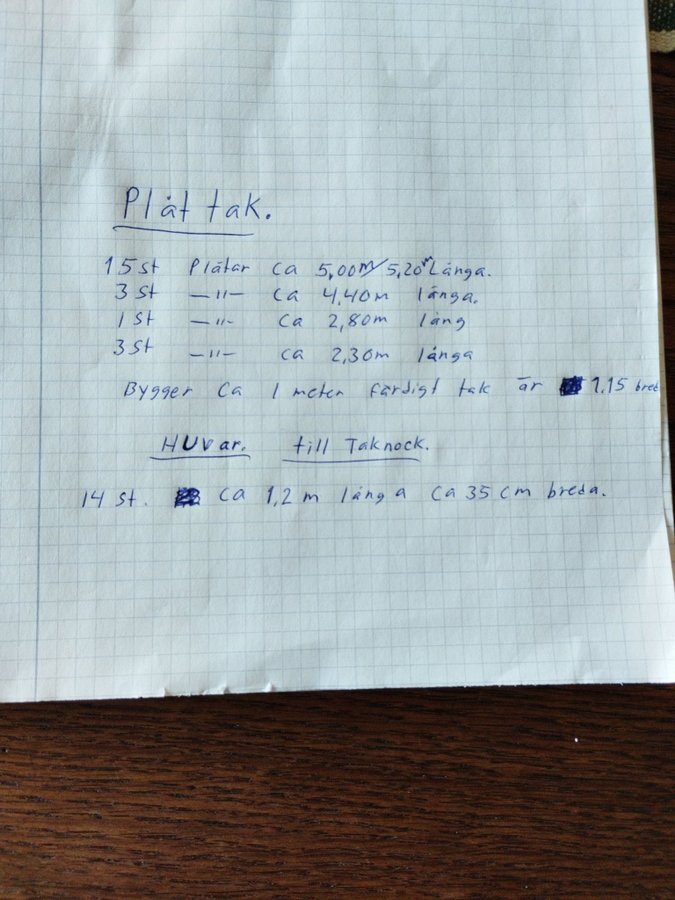 Plåt tak.
15 st Plåtar ca 5,00m/5,20m Långa.
3 st —"— ca 4,40m långa.
1 st —"— ca 2,80m lång
3 st —"— ca 2,30m långa
Bygger ca 1 meter färdigt tak är 1,15 bred
HUVar. till Taknock.
14 st. ca 1,2 m långa ca 35 cm breda.